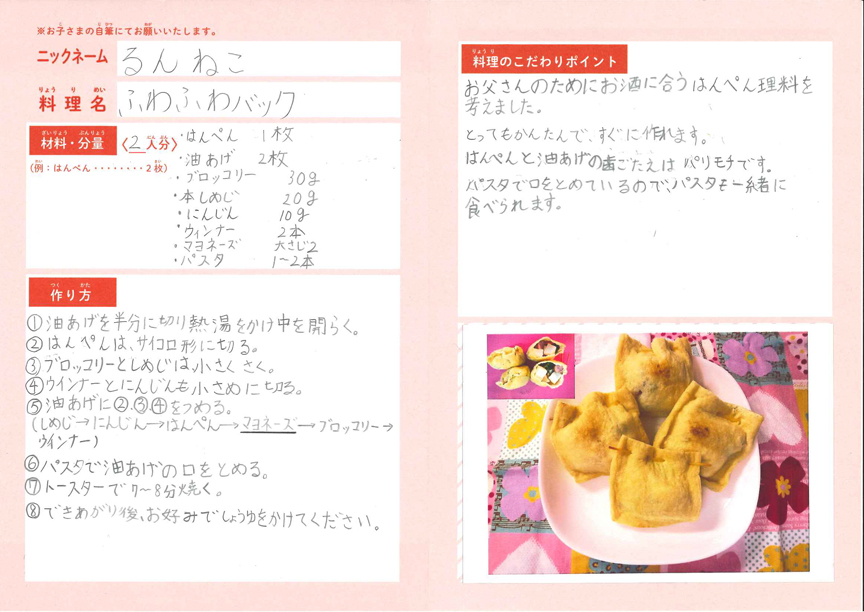 ※お子さまの自筆にてお願いいたします。
ニックネーム るんねこ
料理名 ふわふわパック
材料・分量 〈2人分〉
(例：はんぺん・・・・・・・・2枚)
・はんぺん 1枚
・油あげ 2枚
・ブロッコリー 30g
・本しめじ 20g
・にんじん 10g
・ウィンナー 2本
・マヨネーズ 大さじ2
・パスタ 1〜2本
作り方
①油あげを半分に切り熱湯をかけ中を開らく。
②はんぺんは、サイコロ形に切る。
③ブロッコリーとしめじは小さくさく。
④ウインナーとにんじんも小さめに切る。
⑤油あげに②.③.④をつめる。
(しめじ→にんじん→はんぺん→マヨネーズ→ブロッコリー→
ウインナー)
⑥パスタで油あげの口をとめる。
⑦トースターで7〜8分焼く。
⑧できあがり後、お好みでしょうゆをかけてください。
料理のこだわりポイント
お父さんのためにお酒に合うはんぺん理料を
考えました。
とってもかんたんで、すぐに作れます。
はんぺんと油あげの歯ごたえはパリモチです。
パスタで口をとめているので、パスタも一緒に
食べられます。